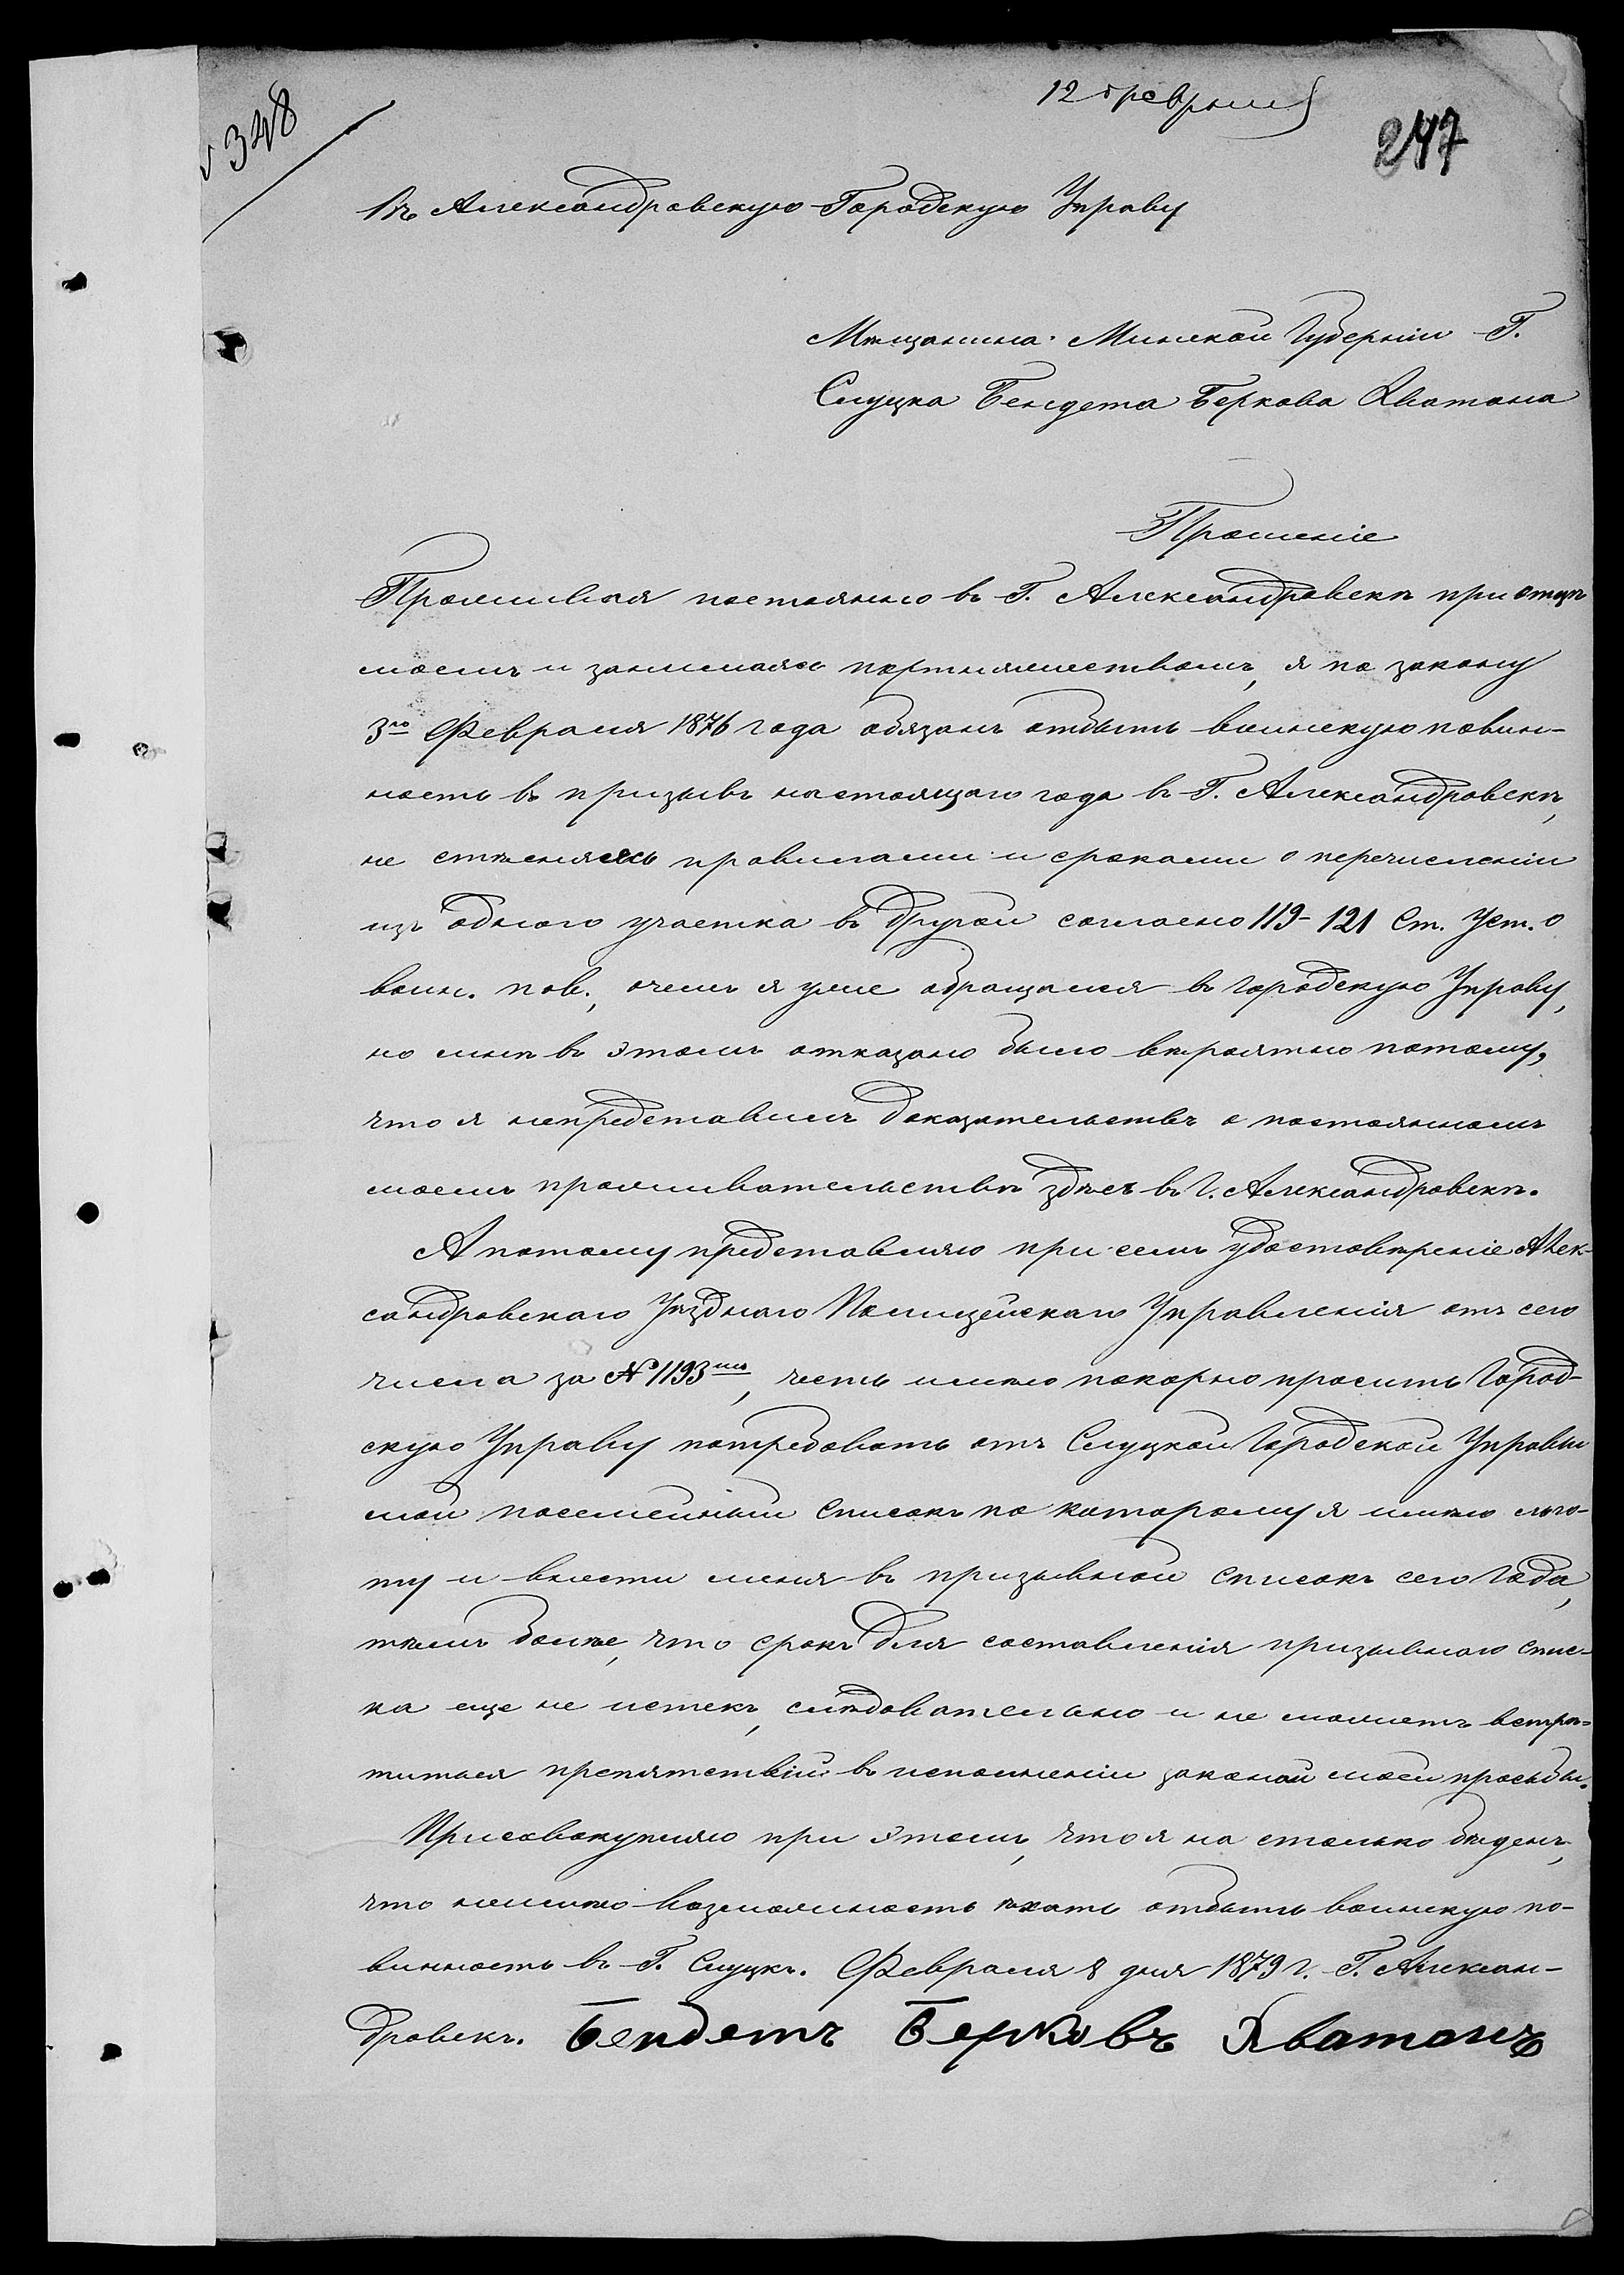 12 февраля
247
348
Въ Александровскую Городскую Управу
Мѣщанина Минской Губерніи Г.
Слуцка Бендета Беркова Хватана
Прошеніе
Проживая постоянно въ Г. Александровскѣ при отцѣ
моемъ и занимаясь портняжествомъ, я по закону
3го Февраля 1876 года обязанъ отбыть воинскую повин-
ность въ призывъ настоящаго года въ Г. Александровскѣ,
не стѣсняясь правилами и сроками о перечисленіи
изъ одного участка въ другой согласно 119-121 Ст. Уст. о
воин. пов., очемъ я уже обращался въ Городскую Управу,
но мнѣ въ этомъ отказано было вѣроятно потому,
что я непредставилъ доказательствъ о постоянномъ
моемъ проживательствѣ здѣсь въ Г. Александровскѣ.
А потому представляю при семъ удостовѣреніе Алек-
сандровскаго Уѣзднаго Полицейскаго Управленія отъ сего
числа за № 1193мъ, честь имѣю покорно просить Город-
скую Управу потребовать отъ Слуцкой Городской Управы
мой посемейный списокъ по которому я имѣю льго-
ту и внести меня въ призывной списокъ сего Года,
тѣмъ болѣе, что срокъ для составленія призывнаго спис-
ка еще не истекъ, слѣдовательно и не можетъ встрѣ-
титься препятствій въ исполненіи законой моей просьбы.
Присовокупляю при этомъ, что я на столько бѣденъ,
что неимѣю возможность ѣхать отбыть воинскую по-
винность въ Г. Слуцкъ. Февраля 8 дня 1879 г. Г. Алексан-
дровскъ. Бендетъ Берковъ Хватанъ